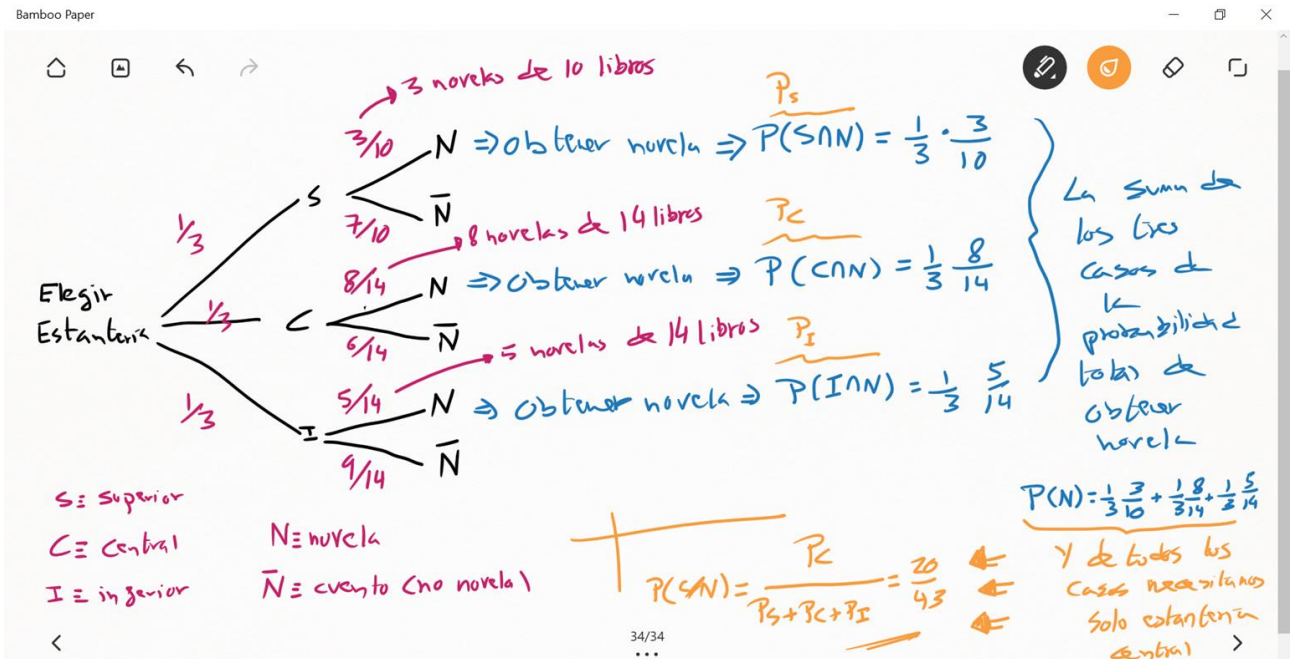 Bamboo Paper
3 novelas de 10 libros
3/10
N ⇒ Obtener novela ⇒ P(S∩N) = 1/3 · 3/10
P_S
S
7/10
N̅
8 novelas de 14 libros
1/3
8/14
N ⇒ Obtener novela ⇒ P(C∩N) = 1/3 8/14
P_C
Elegir
Estantería
1/3
C
6/14
N̅
5 novelas de 14 libros
1/3
5/14
N ⇒ Obtener novela ⇒ P(I∩N) = 1/3 5/14
P_I
I
9/14
N̅
La suma de
los tres
casos da
la
probabilidad
total de
obtener
novela
P(N) = 1/3 3/10 + 1/3 8/14 + 1/3 5/14
S ≡ superior
C ≡ central
I ≡ inferior
N ≡ novela
N̅ ≡ cuento (no novela)
P(C/N) = P_C / P_S + P_C + P_I = 20/43
Y de todos los
casos necesitamos
solo estantería
central
34/34